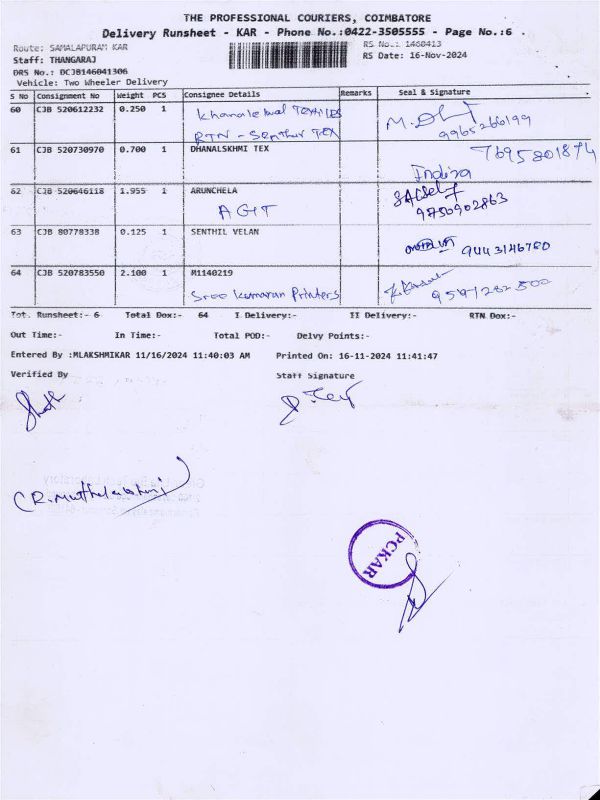 THE PROFESSIONAL COURIERS, COIMBATORE
Delivery Runsheet - KAR - Phone No.:0422-3505555 - Page No.:6 .
Route: SAMALAPURAM KAR
RS No.: 1460413
Staff: THANGARAJ
RS Date: 16-Nov-2024
DRS No.: DCJB146041306
Vehicle: Two Wheeler Delivery
S No Consignment No Weight PCS Consignee Details Remarks Seal & Signature
60 CJB 520612232 0.250 1 Textiles
RTN - Senthur TEX 9965266199
61 CJB 520730970 0.700 1 DHANALSKHMI TEX 7695801874
Indira
62 CJB 520646118 1.955 1 ARUNCHELA
AGIT 9750902863
63 CJB 80778338 0.125 1 SENTHIL VELAN 9443146780
64 CJB 520783550 2.100 1 M1140219
Sree Kumaran Printers
Tot. Runsheet:- 6 Total Dox:- 64 I Delivery:- II Delivery:- RTN Dox:-
Out Time:- In Time:- Total POD:- Delvy Points:-
Entered By :MLAKSHMIKAR 11/16/2024 11:40:03 AM Printed On: 16-11-2024 11:41:47
Verified By Staff Signature
(R. Muthulakshmi)
PCKAR